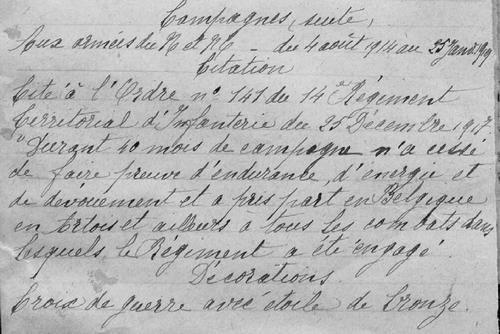 Campagnes, suite,
Aux armées du N et NE - du 4 août 1914 au 25 Janv. 1919
Citation
Cité à l'Ordre n° 141 du 14e Régiment
Territorial d'Infanterie du 25 Décembre 1917
"Durant 40 mois de campagne n'a cessé
de faire preuve d'endurance, d'énergie et
de dévouement et a pris part en Belgique
en Artois et ailleurs à tous les combats dans
lesquels le Régiment a été engagé.
Décorations
Croix de guerre avec étoile de bronze.